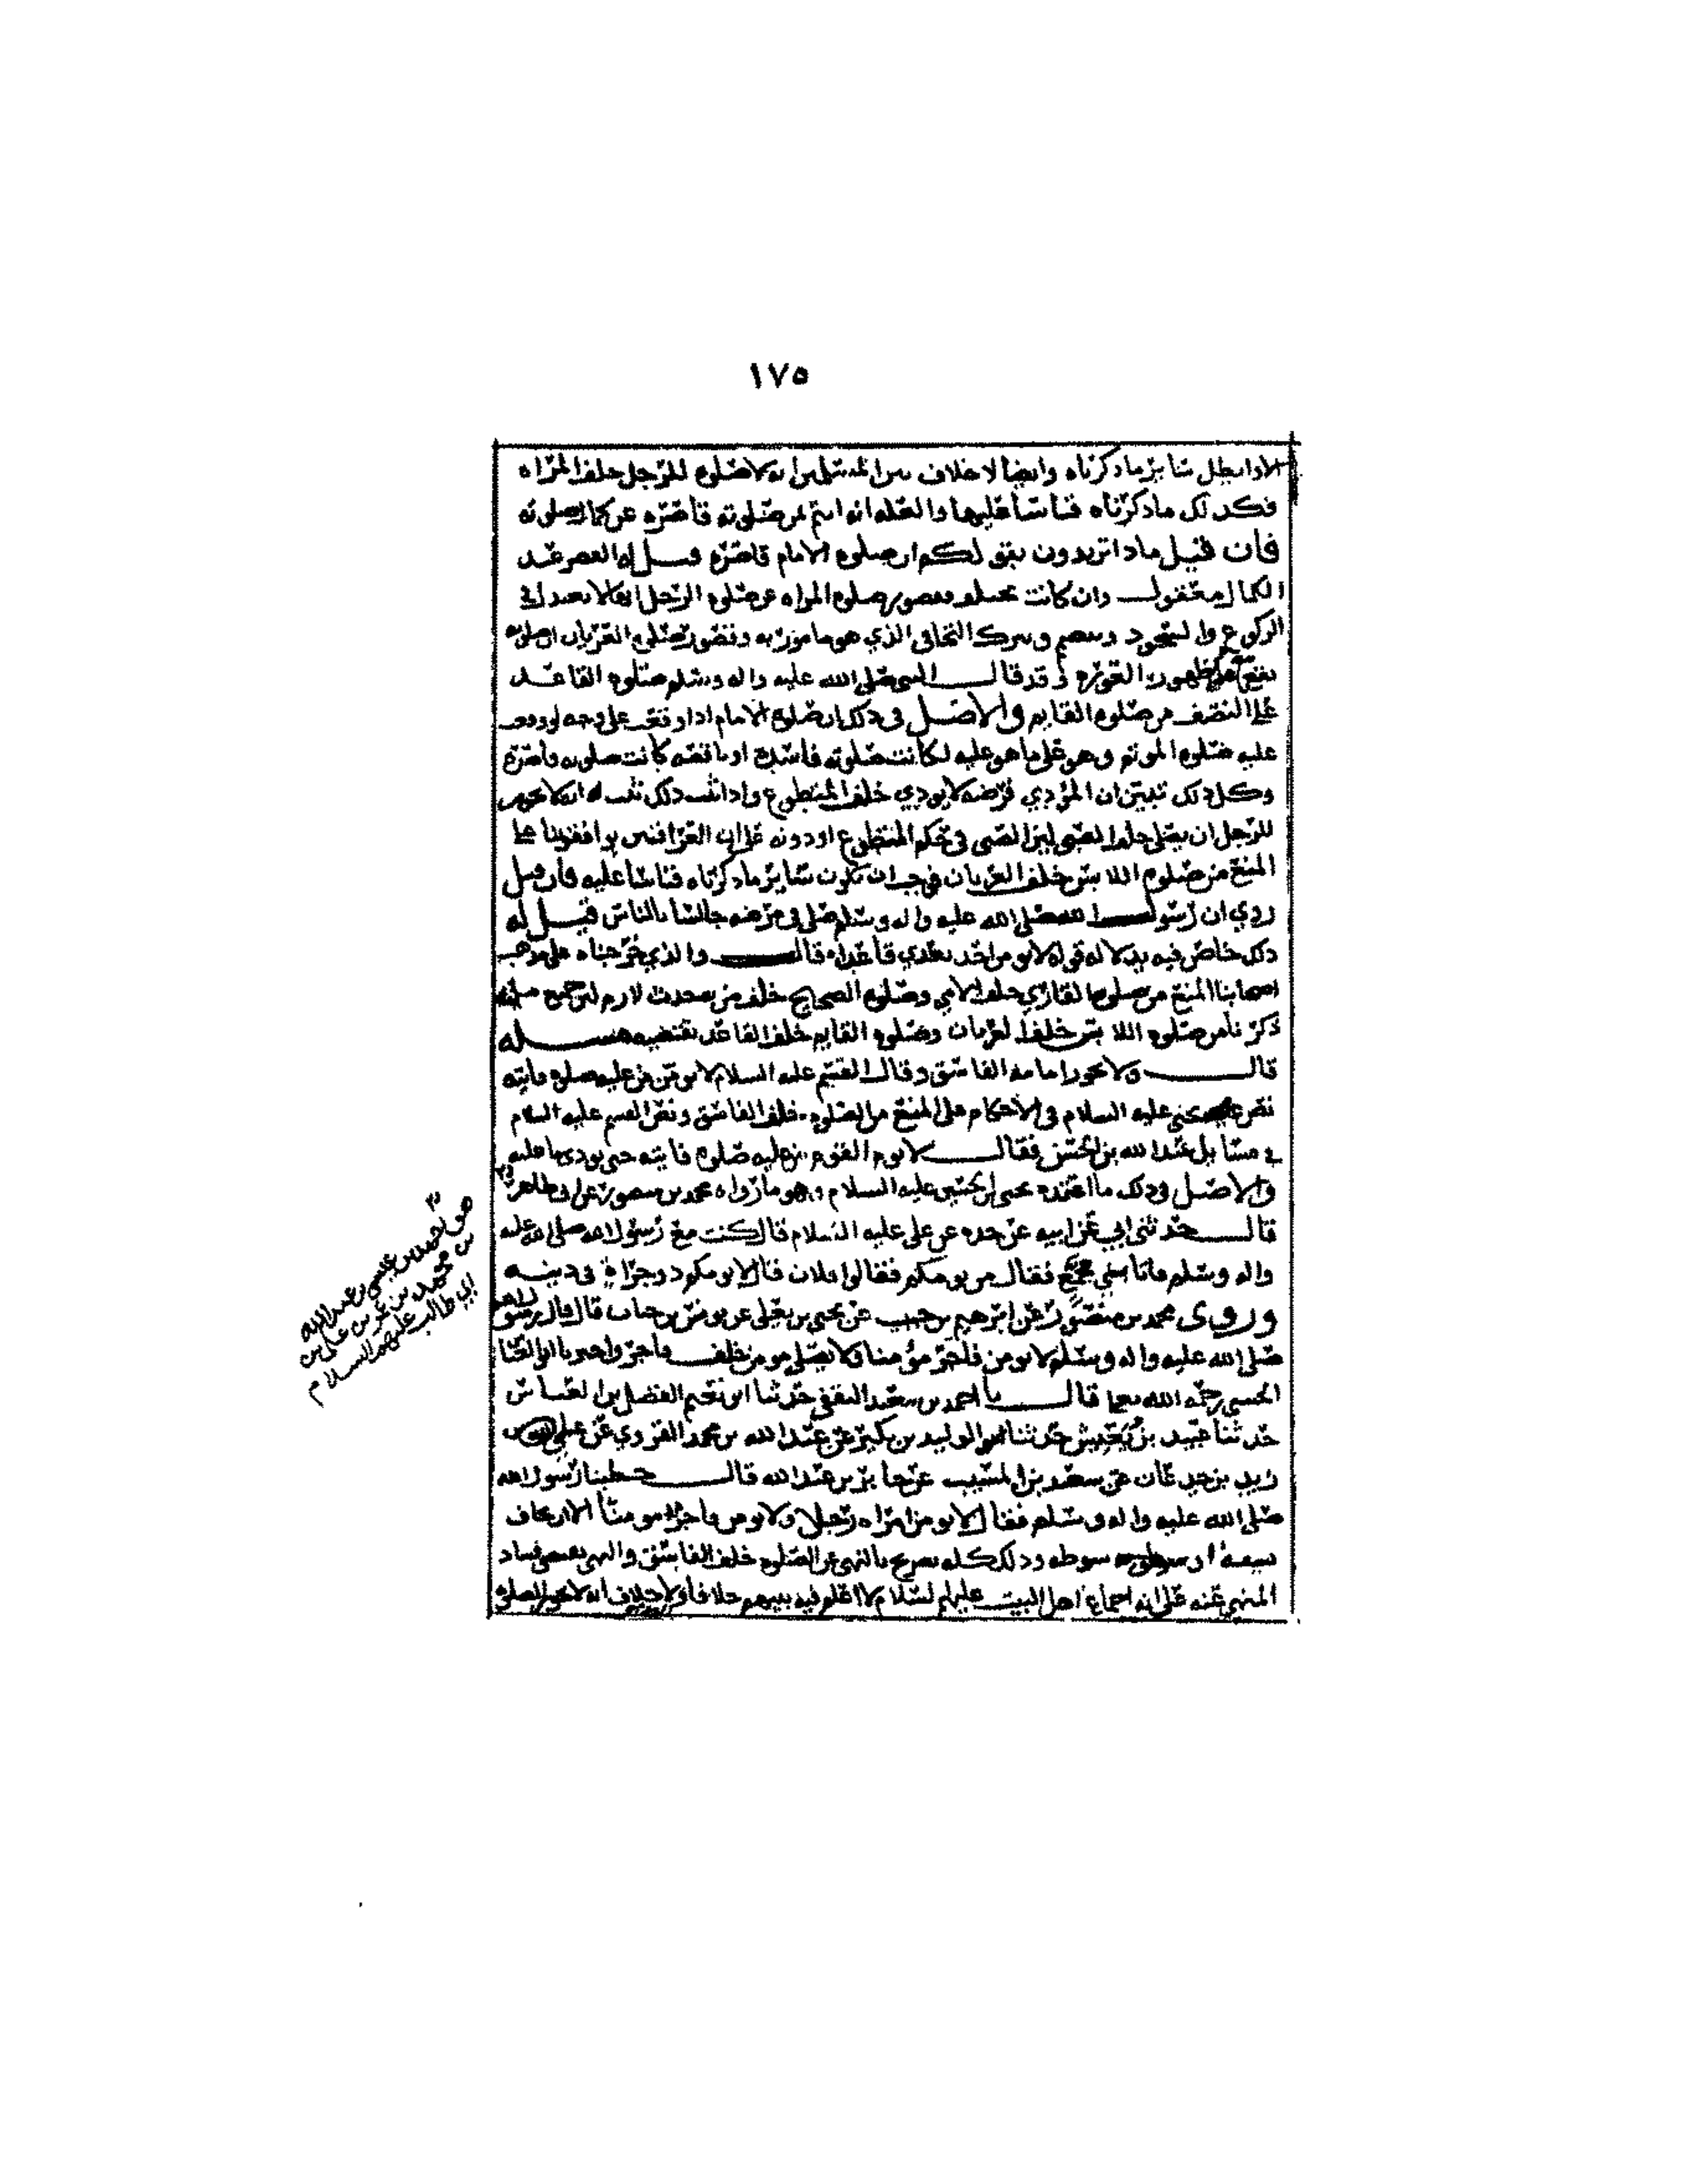 ١٧٥
وايضا لا خلاف المسلمين انه لا صلوه للرجل خلف المراه
فكذلك ما ذكرناه قياسا عليها والعله انه ائتم بمن صلوته قاصره عن كمال صلوته
فان قيل ماذا تريدون بقولكم ان صلوه الامام قاصره قيل له القصر عند
الكمال معقول وان كانت وقصور صلوه المراه عن صلوه الرجل انها لا تعتدل في
الركوع والسجود وتنضم وتترك التجافي الذي هو مامور به وقصور صلوه العريان ان صلوته
تقع مع ظهور العوره وقد قال النبي صلى الله عليه واله وسلم صلوه القاعد
على النصف من صلوه القايم والاصل في ذلك ان صلوه الامام اذا وقعت على وجه لو وقعت
عليه صلوه الموتم وهو على ما هو عليه لكانت صلوته فاسده او ناقصه كانت صلوته قاصره
وكل ذلك تبين ان المؤدي فرضه لا يودي خلف المتطوع واذا ثبت ذلك ثبت انه لا يجوز
للرجل ان يصلي خلف الصبي لان الصبي في حكم المتطوع او دونه على ان العراقيين يوافقونا على
المنع من صلوه اللابس خلف العريان فيجب ان تكون ساير ما ذكرناه قياسا عليه فان قيل
روي ان رسول الله صلى الله عليه واله وسلم صلى في مرضه جالسا بالناس قيل له
ذلك خاص فيه بدلاله قوله لا يومن احد بعدي قاعدا قال والذي خرجناه على مذهب
اصحابنا المنع من صلوه القاري خلف الامي وصلوه الصحيح خلف من به حدث لازم لان جميع ما
ذكرنا من صلوه اللابس خلف العريان وصلوه القايم خلف القاعد يقتضيه مسئله
قال ولا يجوز امامه الفاسق وقال القسم عليه السلام لا يومن من عليه صلوه فايته
نص يحيى عليه السلام في الاحكام على المنع من الصلوه خلف الفاسق ونص القسم عليه السلام
في مسايل عبد الله بن الحسن فقال لا يوم القوم من عليه صلوه فايته حتى يودي ما عليه
والاصل في ذلك ما اعتمده يحيى بن الحسين عليه السلام وهو ما رواه محمد بن منصور عن ابي طاهر
قال حدثني ابي عن ابيه عن جده عن علي عليه السلام قال كنت مع رسول الله صلى الله عليه
واله وسلم فاتا بني مجمع فقال من يومكم فقالوا فلان قال لا يومكم ذو جراة في دينه
وروى محمد بن منصور عن ابرهيم بن حبيب عن يحيى بن يعلى عن يونس بن خباب قال قال رسول الله
صلى الله عليه واله وسلم لا يومن فاجر مؤمنا ولا يصلي مومن خلف فاجر واخبرنا ابو العباس
الحسني رحمه الله قال نا احمد بن سعيد الثقفي حدثنا ابو نعيم الفضل بن العباس
حدثنا عبيد بن حدثنا الوليد بن بكير عن عبد الله بن محمد العدوي عن علي بن
زيد بن جدعان عن سعيد بن المسيب عن جابر بن عبد الله قال خطبنا رسول الله
صلى الله عليه واله وسلم فقال لا تومن امراه رجلا ولا يومن فاجر مومنا الا ان يخاف
سيفه او سوطه وذلك كله تصريح بالنهي عن الصلوه خلف الفاسق والنهي يقتضي فساد
المنهي عنه على انه اجماع اهل البيت عليهم السلام لا اعلم فيه بينهم خلافا ولا خلاف انه لا تجوز الصلوه
هو احمد بن عيسى بن عبد الله
بن محمد بن عمر بن علي بن
ابي طالب عليهم السلام